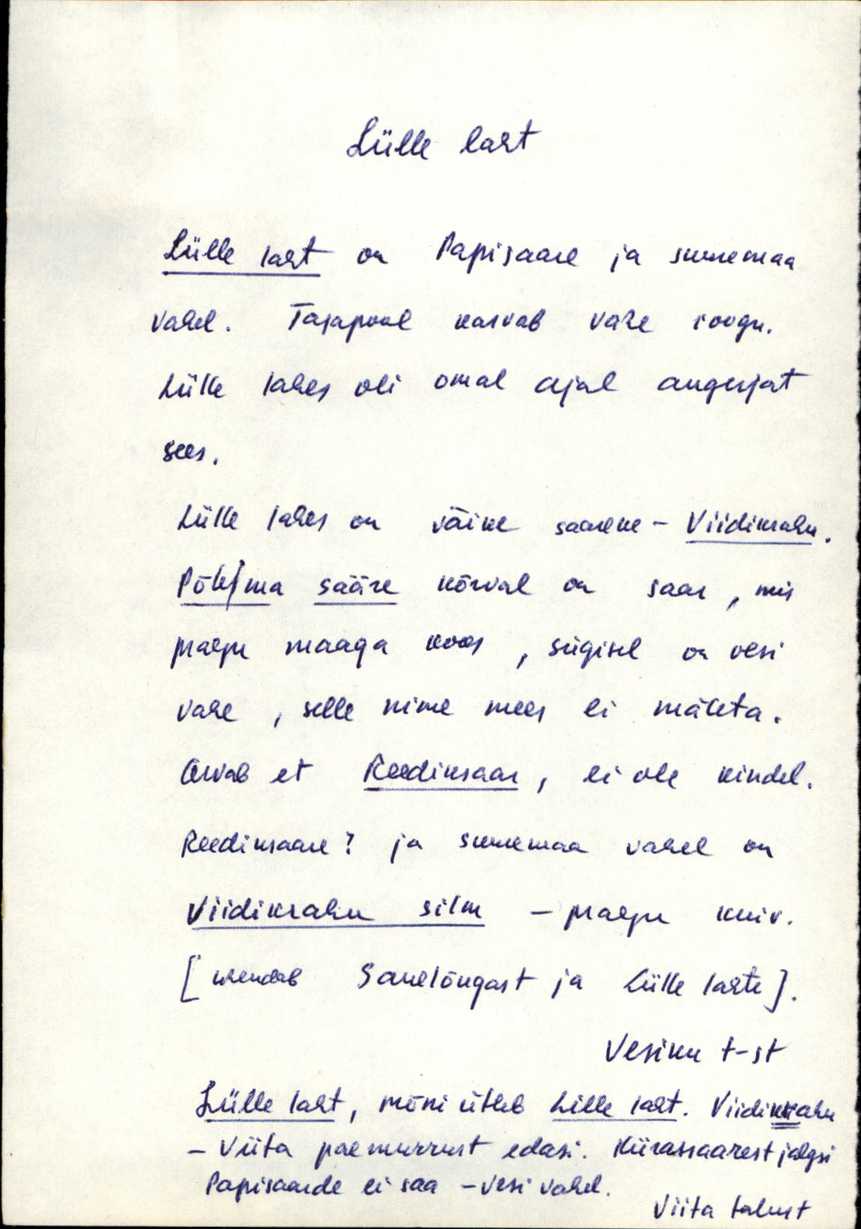 Lülle laht
Lülle laht on Papisaare ja suuremaa
vahel. Tagapool kasvab vähe roogu.
Lülle lahes oli omal ajal angerjat
sees.
Lülle lahes on väike saareke – Viidikrahu.
sääre kõrval on saar, mis
praegu maaga koos, sügisel on vesi
vahe, selle nime mees ei mäleta.
Arvab et Reediksaar, ei ole kindel.
Reediksaare? ja suuremaa vahel on
Viidikrahu silm – praegu kuiv.
[ühendab Sanelõugast ja Lülle lahte].
Vesiku t-st
Lülle laht, mõni ütleb Lille laht. Viidikrahu
– Viita paemurrust edasi. Kiirassaarest jalgsi
Papisaarde ei saa – vesi vahel.
Viita talust